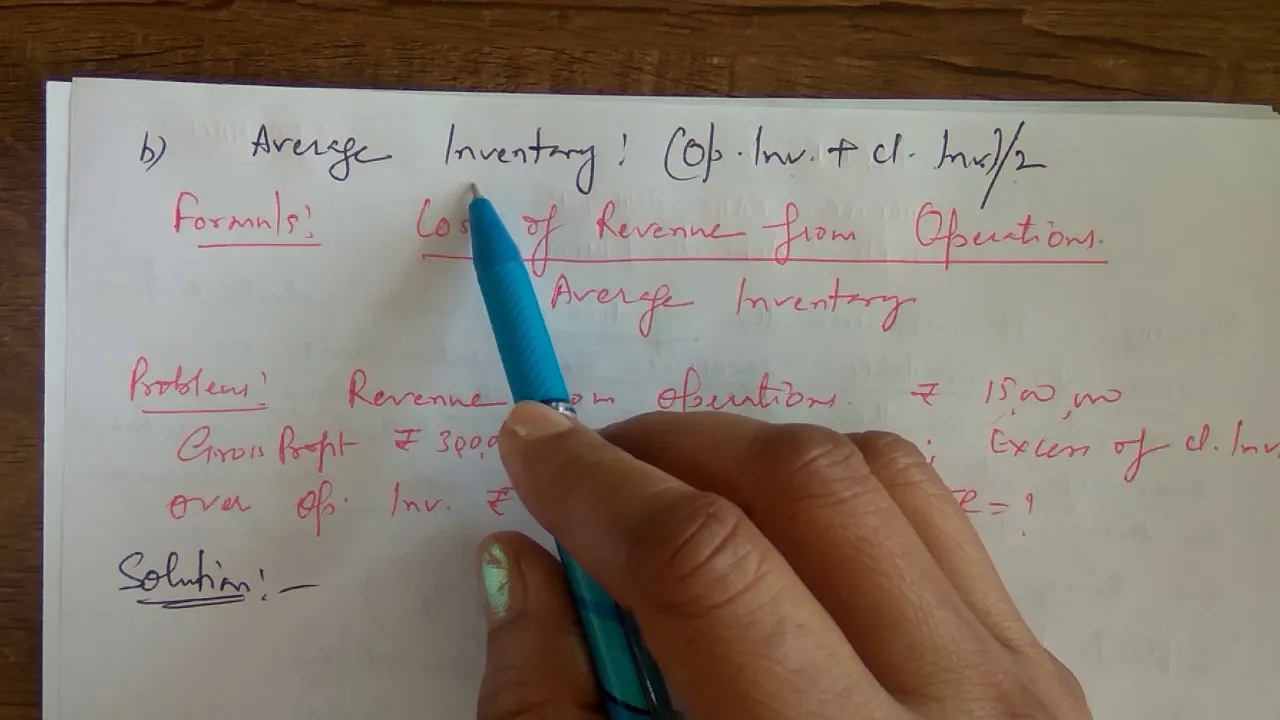 b) Average Inventory: (Op. Inv. + cl. Inv)/2
Formuls: Cos of Revenue from Operations.
Average Inventory
Problem: Revenue om operations. ₹ 15,00,000
Gross Profit ₹ 300,0 ; Excess of cl. Inv.
over Op. Inv. ₹ = ?
Solution:-